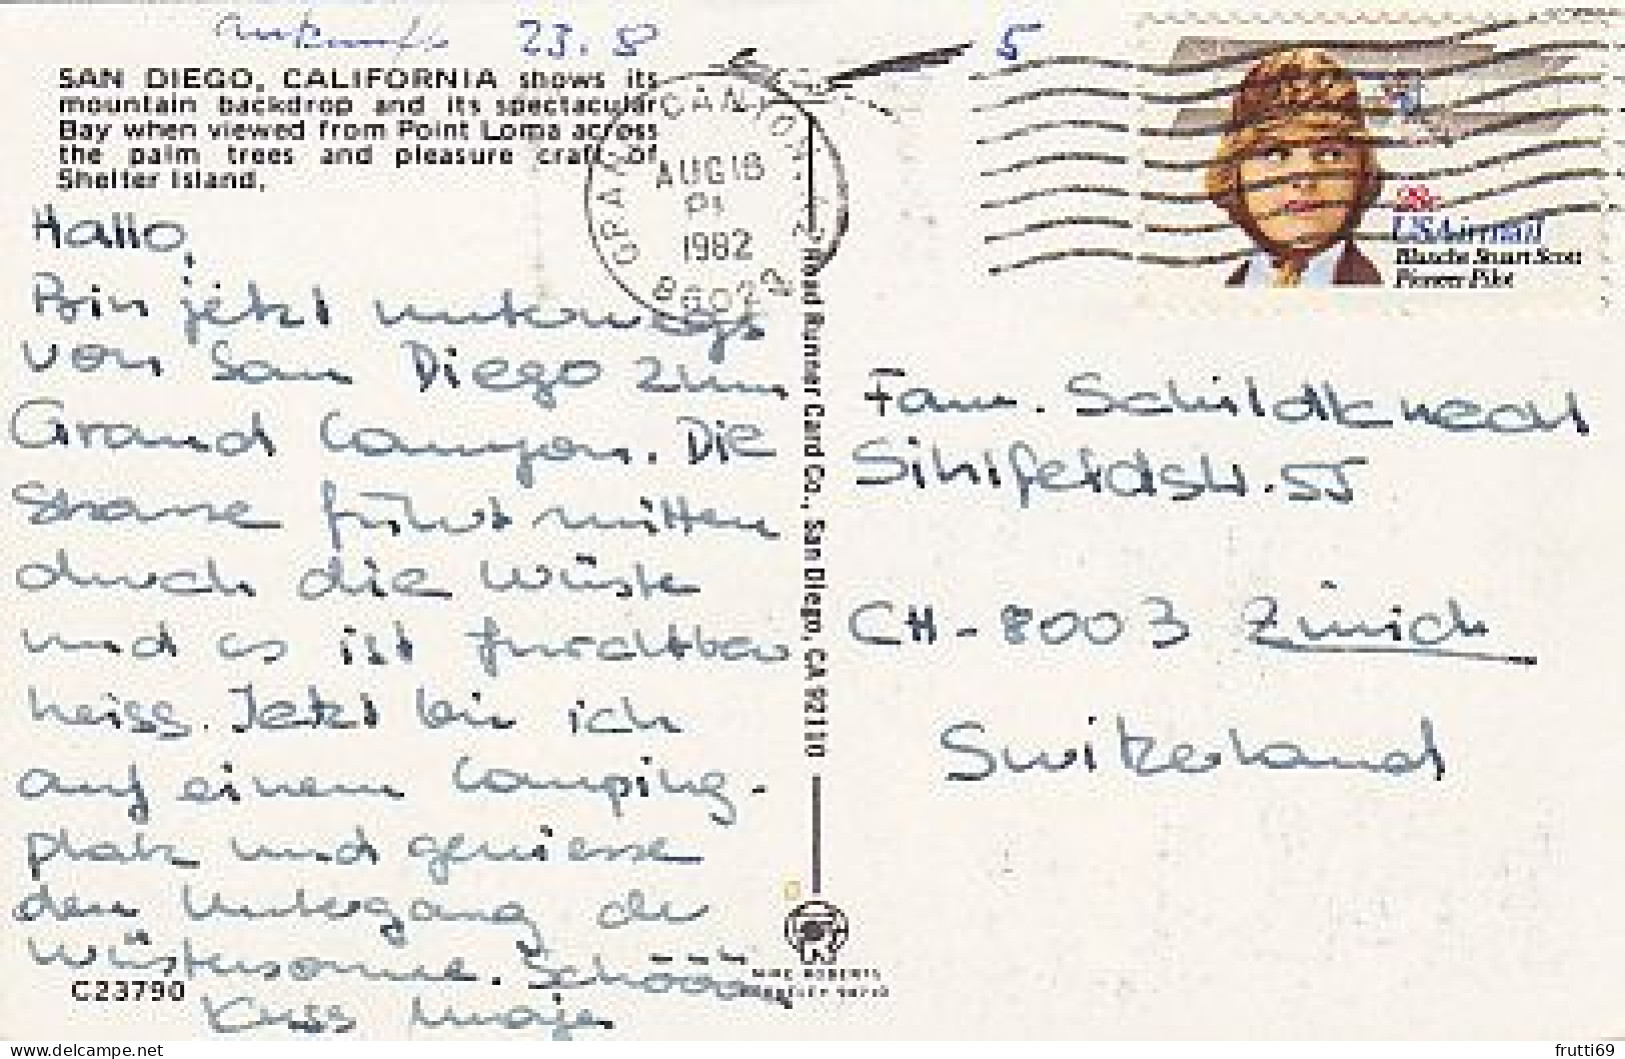 Ankunft 23. 8 5
SAN DIEGO, CALIFORNIA shows its
mountain backdrop and its spectacular
Bay when viewed from Point Loma across
the palm trees and pleasure craft of
Shelter Island.
GRAND CANYON, AZ
AUG 18
PM
1982
86023
28c
USAirmail
Blanche Stuart Scott
Pioneer Pilot
Hallo,
Bin jetzt unterwegs
von San Diego zum
Grand Canyon. Die
Strasse führt mitten
durch die Wüste
und es ist furchtbar
heiss. Jetzt bin ich
auf einem Camping-
platz und geniesse
den Untergang der
Wüstensonne. Schööön
Kuss
C23790
Road Runner Card Co., San Diego, CA 92110
MIKE ROBERTS
BERKELEY 94710
Fam. Schildknecht
Sihlfeldstr. 55
CH-8003 Zürich
Switzerland
delcampe.net
frutti69